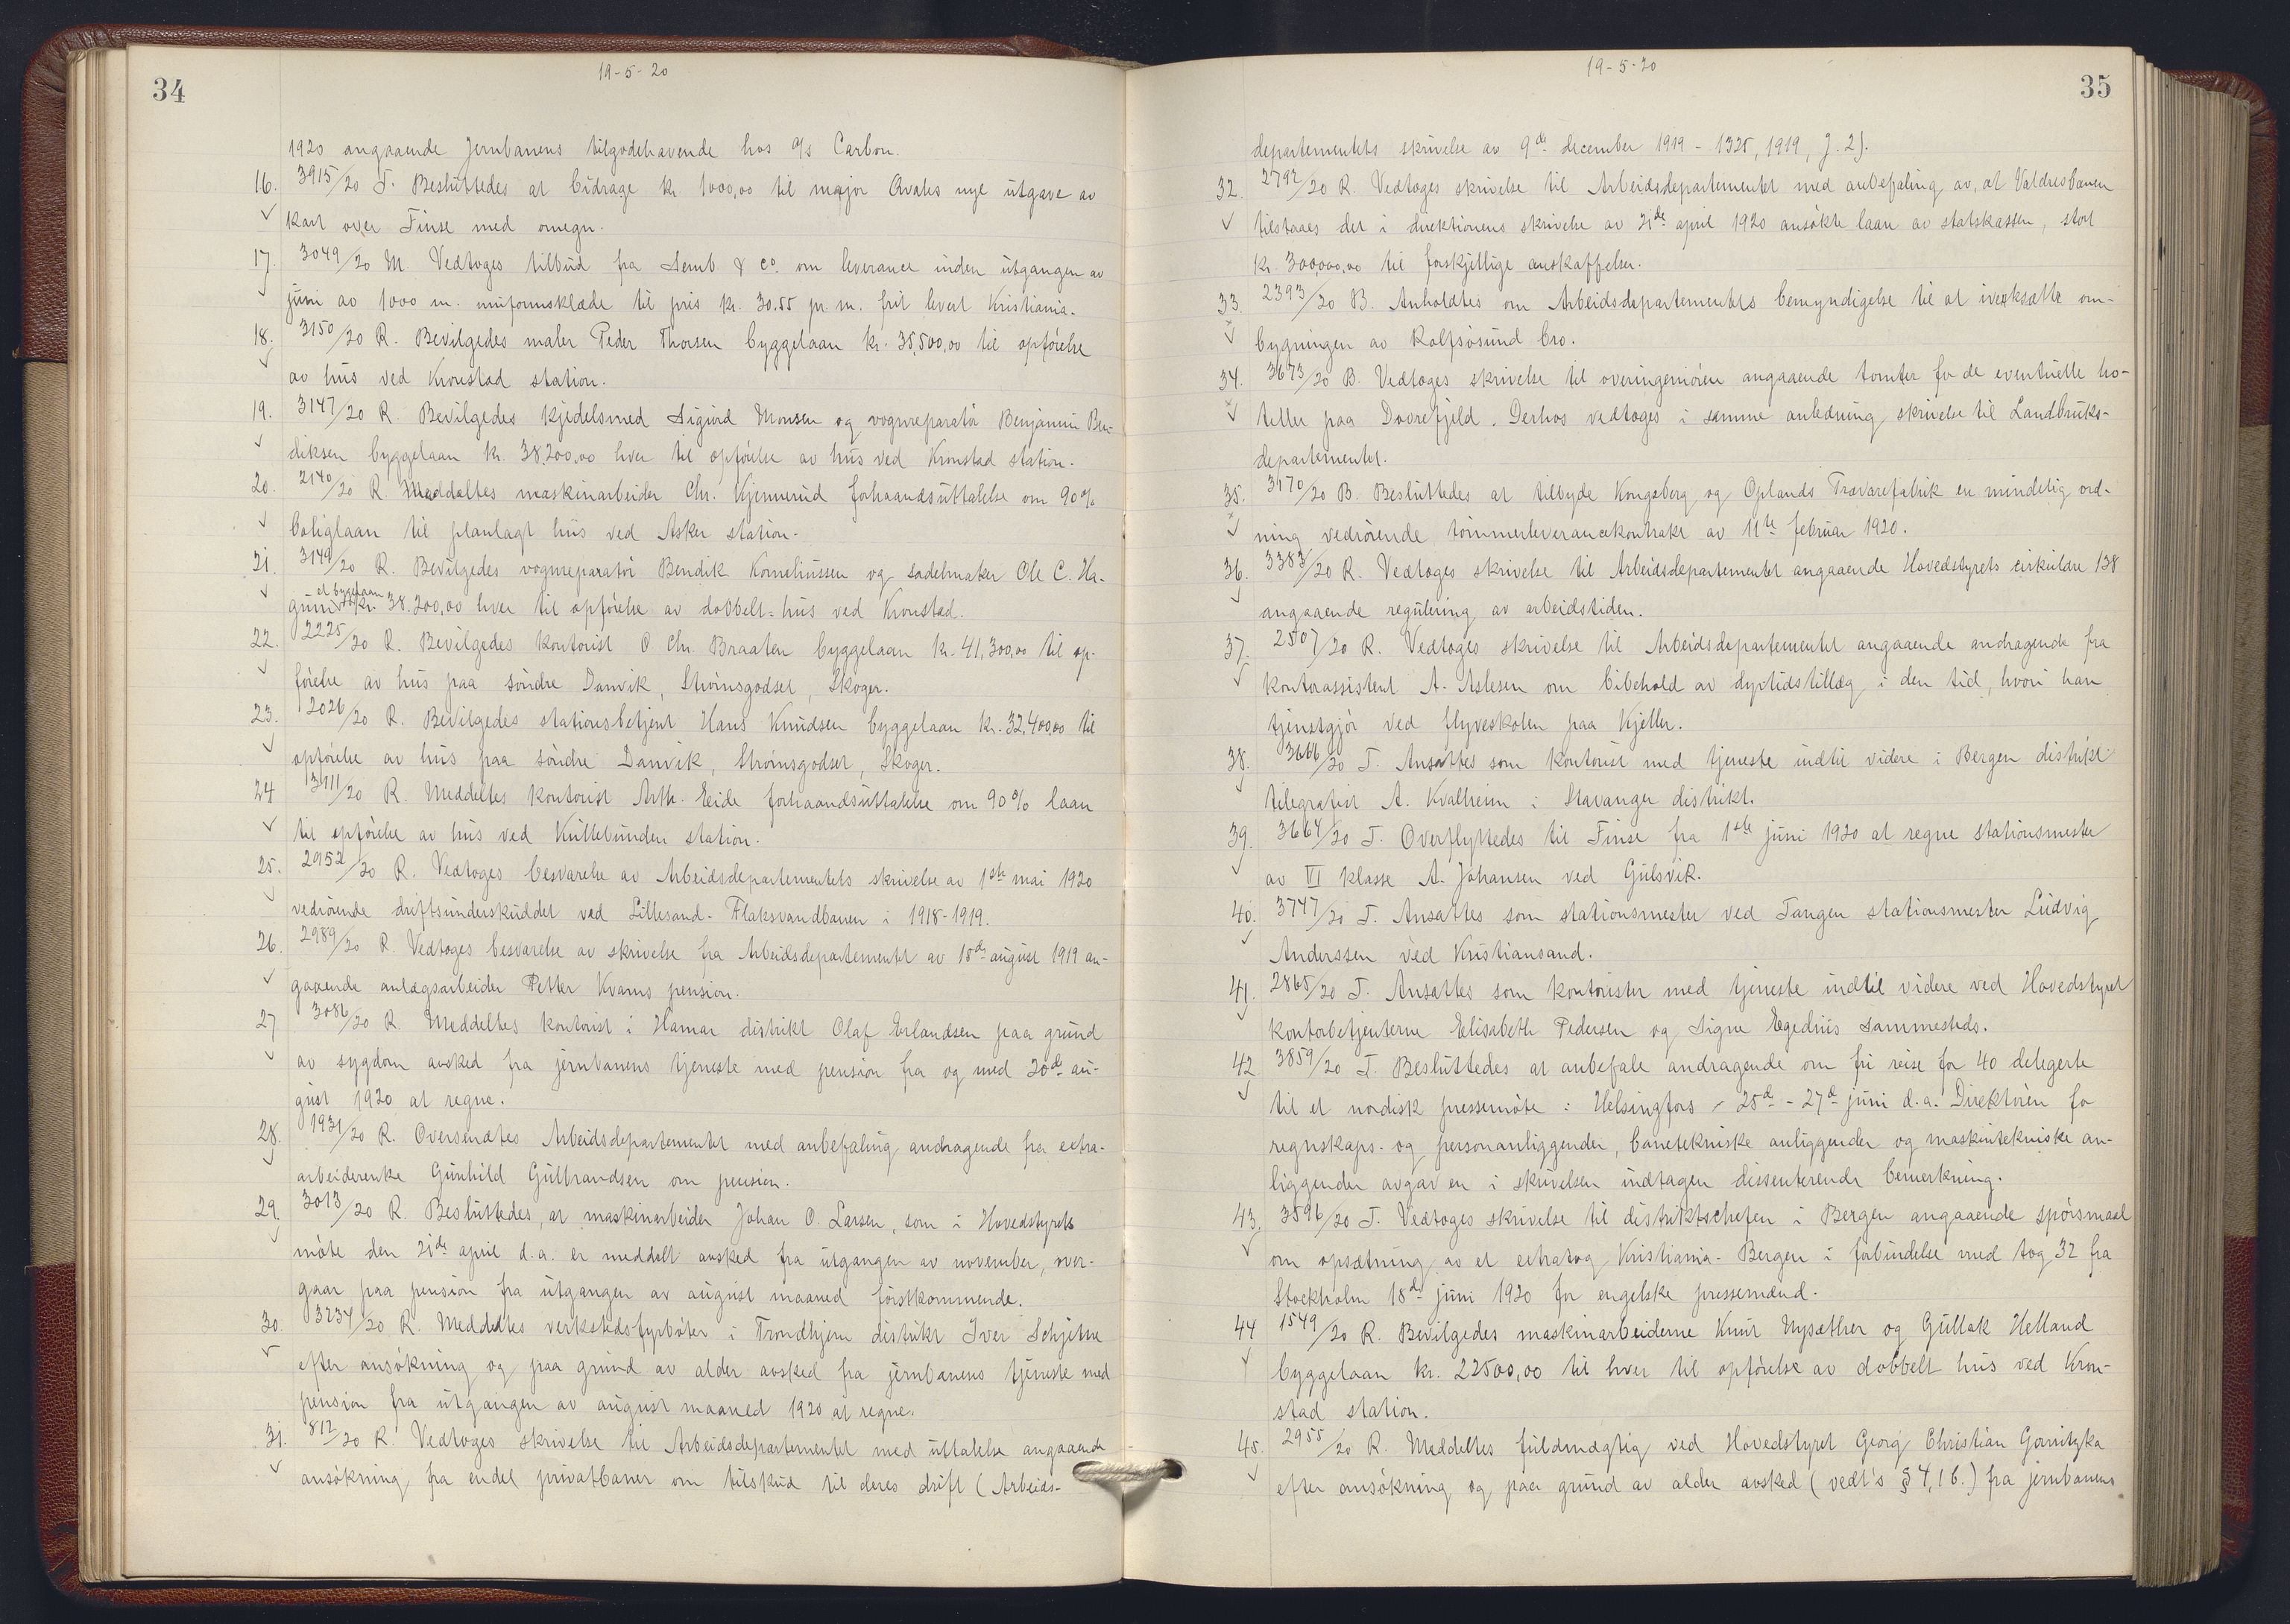 34
19-5-20
1920 angaaende Jernbanens tilgodehavende hos A/s Carbon.
16. 3915/20 T. Besluttedes at bidrage kr. 1000,00 til major Qvales nye utgave av
kart over Finse med omegn.
17. 3049/20 M. Vedtoges tilbud fra Semb & Co. om leverance inden utgangen av
juni av 1000 m. uniformsklæde til pris kr. 30.55 pr. m. frit levert Kristiania.
18. 3150/20 R. Bevilgedes maler Peder Thorsen byggelaan kr. 35,500,00 til opførelse
av hus ved Kronstad station.
19. 3147/20 R. Bevilgedes kjedelsmed Sigurd Monsen og vognreparatør Benjamin Ben-
diksen byggelaan kr. 38,200,00 hver til opførelse av hus ved Kronstad station.
20. 2140/20 R. Meddeltes maskinarbeider Chr. Kjennerud forhaandsuttalelse om 90%
boliglaan til planlagt hus ved Asker station.
21. 3149/20 R. Bevilgedes vognreparatør Bendik Korneliussen og sadelmaker Ole C. Ha-
gum et byggelaan kr. 38.200,00 hver til opførelse av dobbelt-hus ved Kronstad.
22. 2225/20 R. Bevilgedes kontorist O Chr. Braaten byggelaan kr. 41,300,00 til op-
førelse av hus paa søndre Danvik, Strømsgodset, Skoger.
23. 2026/20 R. Bevilgedes stationsbetjent Hans Knudsen byggelaan kr. 32,400,00 til
opførelse av hus paa søndre Danvik, Strømsgodset, Skoger.
24 3111/20 R. Meddeltes kontorist Arth. Eide forhaandsuttalelse om 90% laan
til opførelse av hus ved Kullebunden station.
25. 2952/20 R. Vedtoges besvarelse av Arbeidsdepartementets skrivelse av 1ste mai 1920
vedrørende driftsunderskuddet ved Lillesand-Flaksvandbanen i 1918-1919.
26. 2989/20 R. Vedtoges besvarelse av skrivelse fra Arbeidsdepartementet av 18de august 1919 an-
gaaende anlægsarbeider Petter Kvams pension.
27 3086/20 R. Meddeltes kontorist i Hamar distrikt Olaf Erlandsen paa grund
av sygdom avsked fra jernbanens tjeneste med pension fra og med 20de au-
gust 1920 at regne.
28. 1931/20 R. Oversendtes Arbeidsdepartementet med anbefaling andragende fra extra-
arbeiderenke Gunhild Gulbrandsen om pension.
29. 3013/20 R. Besluttedes, at maskinarbeider Johan O. Larsen, som i Hovedstyrets
møte den 21de april d.a. er meddelt avsked fra utgangen av november, over-
gaar paa pension fra utgangen av august maaned førstkommende.
30. 3234/20 R. Meddeltes verkstedsfyrbøter i Trondhjem distrikt Iver Schjetne
efter ansøkning og paa grund av alder avsked fra jernbanens tjeneste med
pension fra utgangen av august maaned 1920 at regne.
31. 812/20 R. Vedtoges skrivelse til Arbeidsdepartementet med uttalelse angaaende
ansøkning fra endel privatbaner om tilskud til deres drift (Arbeids-
35
19-5-20
departementets skrivelse av 9de december 1919 - 1325, 1919, J. 2).
32. 2792/20 R. Vedtoges skrivelse til Arbeidsdepartementet med anbefaling av, at Valdresbanen
tilstaaes det i direktionens skrivelse av 21de april 1920 ansøkte laan av statskassen, stort
kr. 300,000,00 til forskjellige anskaffelser.
33. 2393/20 B. Anholdtes om Arbeidsdepartementets bemyndigelse til at iverksætte om-
bygningen av Rolfsøsund bro.
34. 3673/20 B. Vedtoges skrivelse til overingeniøren angaaende tomter for de eventuelle ho-
teller paa Dovrefjeld. Derhos vedtoges i samme anledning skrivelse til Landbruks-
departementet.
35. 3170/20 B. Besluttedes at tilbyde Kongsberg og Oplands Trævarefabrik en mindelig ord-
ning vedrørende tømmerleverancekontrakt av 11te februar 1920.
36. 3383/20 R. Vedtoges skrivelse til Arbeidsdepartementet angaaende Hovedstyrets cirkulære 138
angaaende regulering av arbeidstiden.
37. 2507/20 R. Vedtoges skrivelse til Arbeidsdepartementet angaaende andragende fra
kontorassistent A. Aslesen om bibehold av dyrtidstillæg i den tid, hvori han
tjenstgjør ved flyveskolen paa Kjeller.
38. 3666/20 T. Ansattes som kontorist med tjeneste indtil videre i Bergen distrikt
telegrafist A. Kvalheim i Stavanger distrikt.
39. 3664/20 T. Overflyttedes til Finse fra 1ste juni 1920 at regne stationsmester
av VI klasse A. Johansen ved Gulsvik.
40. 3747/20 T. Ansattes som stationsmester ved Tangen stationsmester Ludvig
Anderssen ved Kristiansand.
41. 2865/20 T. Ansattes som kontorister med tjeneste indtil videre ved Hovedstyret
kontorbetjenterne Elisabeth Pedersen og Signe Egedius sammesteds.
42 3859/20 T. Besluttedes at anbefale andragende om fri reise for 40 delegerte
til et nordisk pressemøte i Helsingfors - 25de - 27de juni d.a. Direktøren for
regnskaps- og personanliggender, banetekniske anliggender og maskintekniske an-
liggender avgav en i skrivelsen indtagen dissenterende bemerkning.
43. 3596/20 T. Vedtoges skrivelse til distriktschefen i Bergen angaaende spørsmaal
om opsætning av et extratog Kristiania-Bergen i forbindelse med tog 32 fra
Stockholm 18de juni 1920 for engelske pressemænd.
44 1549/20 R. Bevilgedes maskinarbeiderne Knut Nysæther og Gullak Helland
byggelaan kr. 22500,00 til hver til opførelse av dobbelt hus ved Kron-
stad station.
45. 2955/20 R. Meddeltes fuldmægtig ved Hovedstyret Georg Christian Gornitzka
efter ansøkning og paa grund av alder avsked (vedt's § 4, 1 b.) fra jernbanens